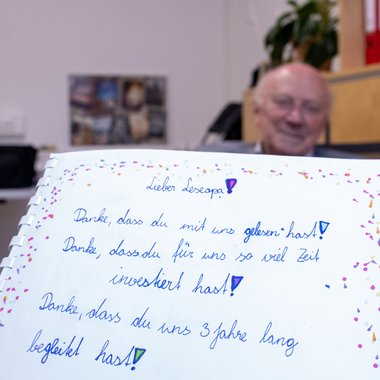 Lieber Leseopa!
Danke, dass du mit uns gelesen hast!
Danke, dass du für uns so viel Zeit
investiert hast!
Danke, dass du uns 3 Jahre lang
begleitet hast!